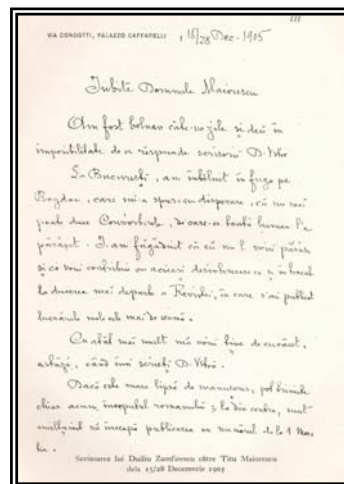 III
VIA CONDOTTI, PALAZZO CAFFARELLI , 15/28 Dec. 1905
Iubite Domnule Maiorescu
Am fost bolnav câte-va zile și deci în
imposibilitate de a răspunde scrisorii D-Vstre
La București, am întâlnit în fuga pe
Bogdan, care mi-a spus cu disperare, că nu mai
poate duce Convorbirile, de oare-ce toată lumea l'a
părăsit. I-am făgăduit că eu nu-l voiu părăsi
și că voiu contribui cu aceiași desinteresare ca și în trecut
la ducerea mai departe a Revistei, în care s'au publicat
lucrările mele cele mai de seamă.
Cu atât mai mult mă voiu ține de cuvânt,
astăzi, când îmi scrieți D-Vstră.
Dacă este mare lipsă de manuscris, pot trimite
chiar acum, începutul romanului; la din contra, sunt
mulțumit să înceapă publicarea cu numărul de la 1 Mar-
tie.
Scrisoarea lui Duiliu Zamfirescu către Titu Maiorescu
dela 15/28 Decemvrie 1905